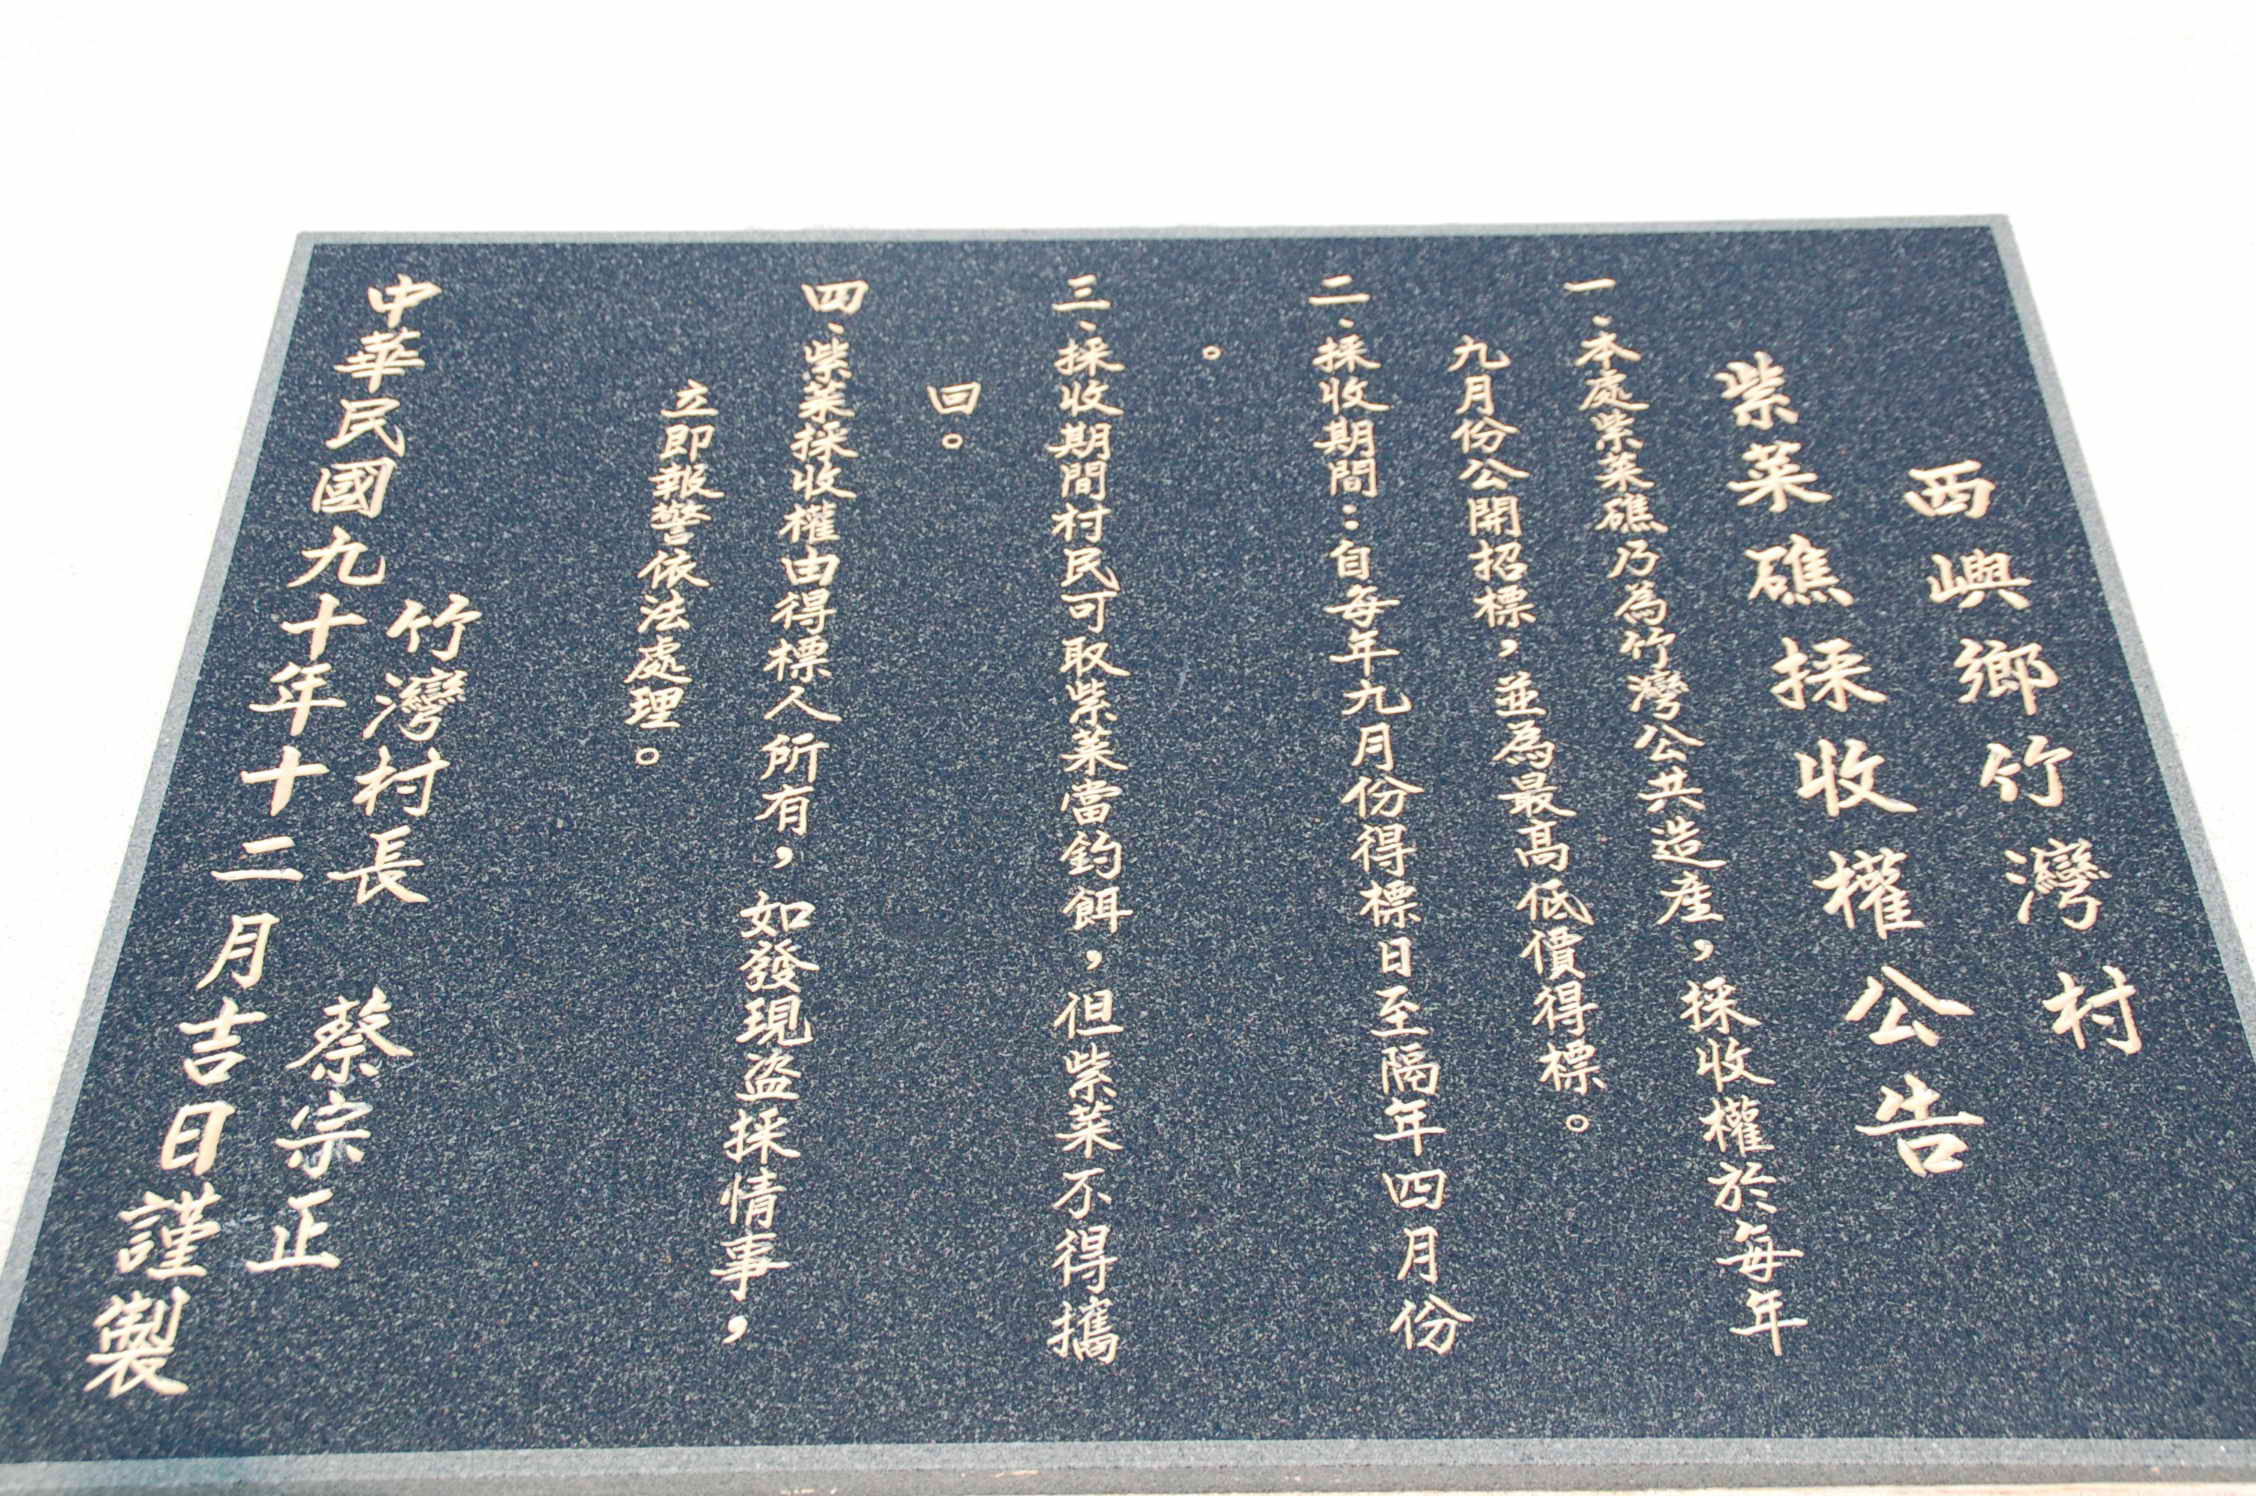 西嶼鄉竹灣村
紫菜礁採收權公告
一、本處紫菜礁乃為竹灣公共造產，採收權於每年
九月份公開招標，並為最高低價得標。
二、採收期間：自每年九月份得標日至隔年四月份
。
三、採收期間村民可取紫菜當釣餌，但紫菜不得攜
回。
四、紫菜採收權由得標人所有，如發現盜採情事，
立即報警依法處理。
竹灣村長 蔡宗正
中華民國九十年十二月吉日謹製